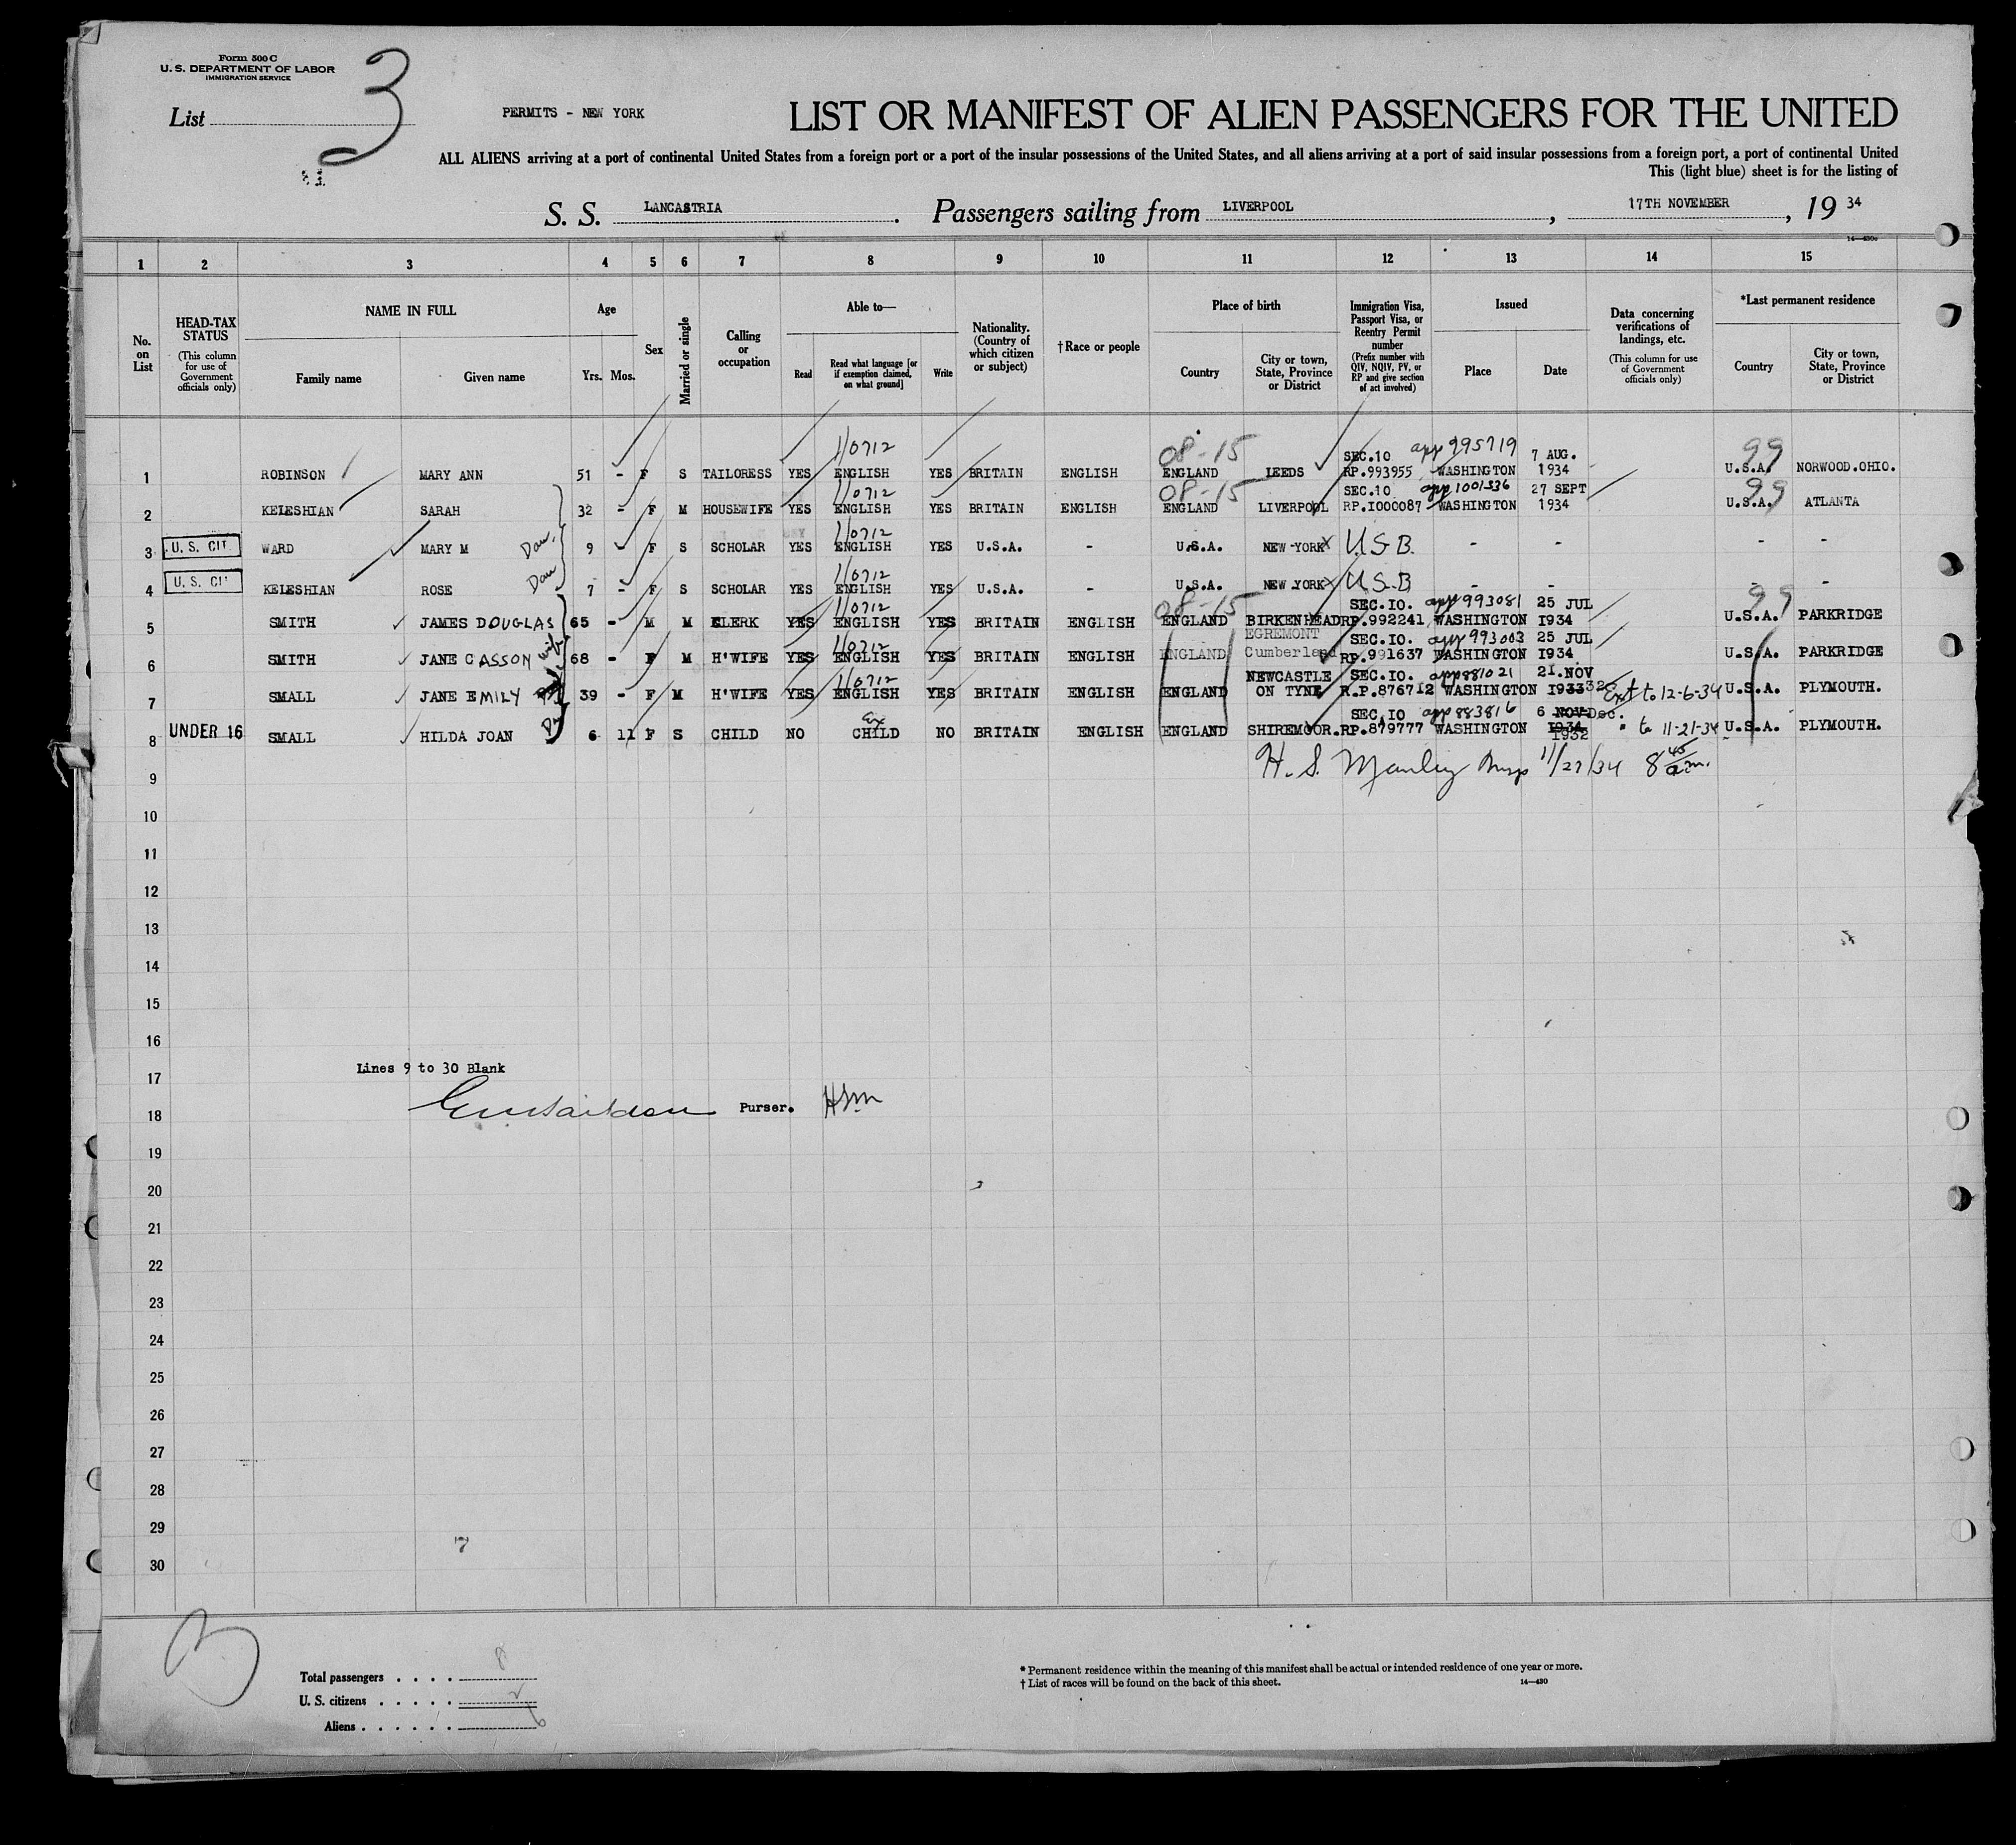 Form 500 C
U. S. DEPARTMENT OF LABOR
IMMIGRATION SERVICE
List 3
PERMITS - NEW YORK
LIST OR MANIFEST OF ALIEN PASSENGERS FOR THE UNITED
ALL ALIENS arriving at a port of continental United States from a foreign port or a port of the insular possessions of the United States, and all aliens arriving at a port of said insular possessions from a foreign port, a port of continental United
This (light blue) sheet is for the listing of
S. S. LANCASTRIA. Passengers sailing from LIVERPOOL, 17TH NOVEMBER, 19 34
1 2 3 4 5 6 7 8 9 10 11 12 13 14 15
No. on List
HEAD-TAX STATUS (This column for use of Government officials only)
NAME IN FULL Family name Given name
Age Yrs. Mos.
Sex
Married or single
Calling or occupation
Able to— Read Read what language [or if exemption claimed, on what ground] Write
Nationality. (Country of which citizen or subject)
†Race or people
Place of birth Country City or town, State, Province or District
Immigration Visa, Passport Visa, or Reentry Permit number (Prefix number with QIV, NQIV, PV, or RP and give section of act involved)
Issued Place Date
Data concerning verifications of landings, etc. (This column for use of Government officials only)
*Last permanent residence Country City or town, State, Province or District
1/0712 08-15 SEC.10 app 995719 7 AUG. 99
1 ROBINSON MARY ANN 51 - F S TAILORESS YES ENGLISH YES BRITAIN ENGLISH ENGLAND LEEDS RP.993955 WASHINGTON 1934 U.S.A. NORWOOD.OHIO.
1/0712 08-15 SEC.10 app 1001336 27 SEPT 99
2 KELESHIAN SARAH 32 - F M HOUSEWIFE YES ENGLISH YES BRITAIN ENGLISH ENGLAND LIVERPOOL RP.I000087 WASHINGTON 1934 U.S.A. ATLANTA
1/0712
3 U. S. CIT WARD MARY M Dau. 9 - F S SCHOLAR YES ENGLISH YES U.S.A. - U.S.A. NEW YORK X U.S.B. - - - -
1/0712
4 U. S. CIT KELESHIAN ROSE Dau 7 - F S SCHOLAR YES ENGLISH YES U.S.A. - U.S.A. NEW YORK X U.S.B - - - -
1/0712 08-15 SEC.IO. app 993081 25 JUL 99
5 SMITH JAMES DOUGLAS 65 - M M CLERK YES ENGLISH YES BRITAIN ENGLISH ENGLAND BIRKENHEAD RP.992241 WASHINGTON I934 U.S.A. PARKRIDGE
1/0712 EGREMONT SEC.IO. app 993003 25 JUL
6 SMITH JANE CASSON wife 68 - F M H'WIFE YES ENGLISH YES BRITAIN ENGLISH ENGLAND Cumberland RP.991637 WASHINGTON I934 U.S.A. PARKRIDGE
1/0712 NEWCASTLE SEC.IO. app 881021 21.NOV
7 SMALL JANE EMILY 39 - F M H'WIFE YES ENGLISH YES BRITAIN ENGLISH ENGLAND ON TYNE R.P.876712 WASHINGTON I933 32 Ext to 12-6-34 U.S.A. PLYMOUTH.
Ex SEC.IO app 883816 6 NOV Dec.
8 UNDER 16 SMALL HILDA JOAN 6 11 F S CHILD NO CHILD NO BRITAIN ENGLISH ENGLAND SHIREMOOR. RP.879777 WASHINGTON I934 1932 " to 11-21-34 U.S.A. PLYMOUTH.
9 H. S. Manley Insp 11/27/34 8 45 a.m.
10
11
12
13
14
15
16
Lines 9 to 30 Blank
17
18 Purser. HSM
19
20
21
22
23
24
25
26
27
28
29
30
Total passengers . . . . 8
U. S. citizens . . . . . 2
Aliens . . . . . . 6
* Permanent residence within the meaning of this manifest shall be actual or intended residence of one year or more.
† List of races will be found on the back of this sheet.
14—430